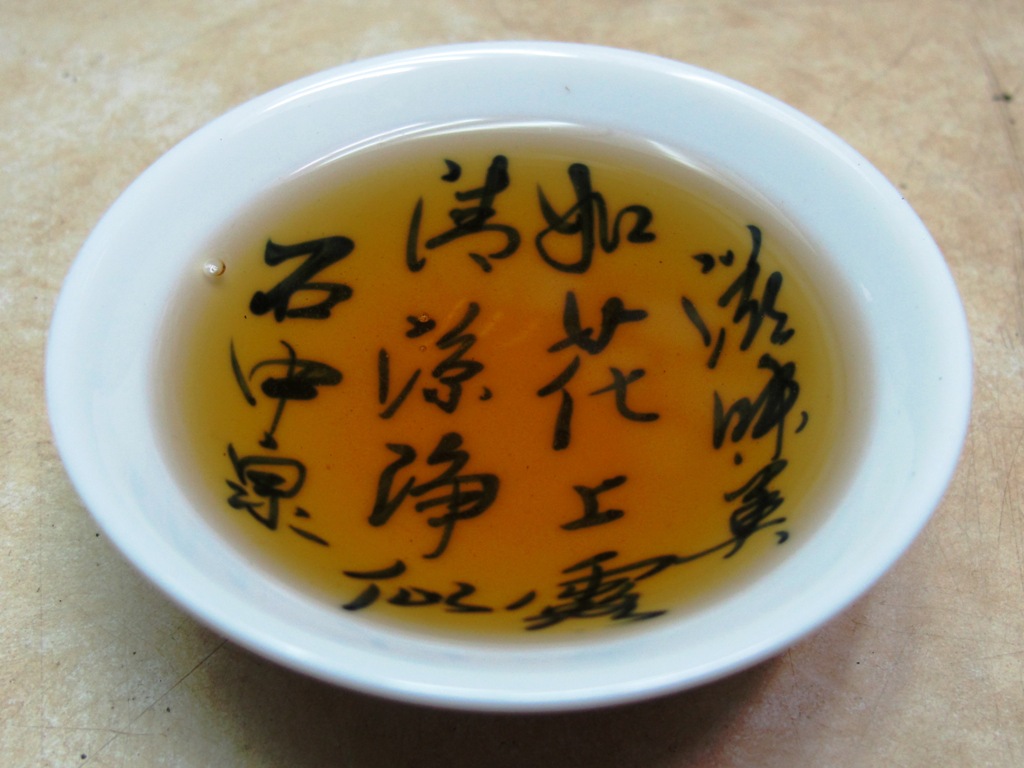 滋味美
如花上露
清凉净似
石中泉